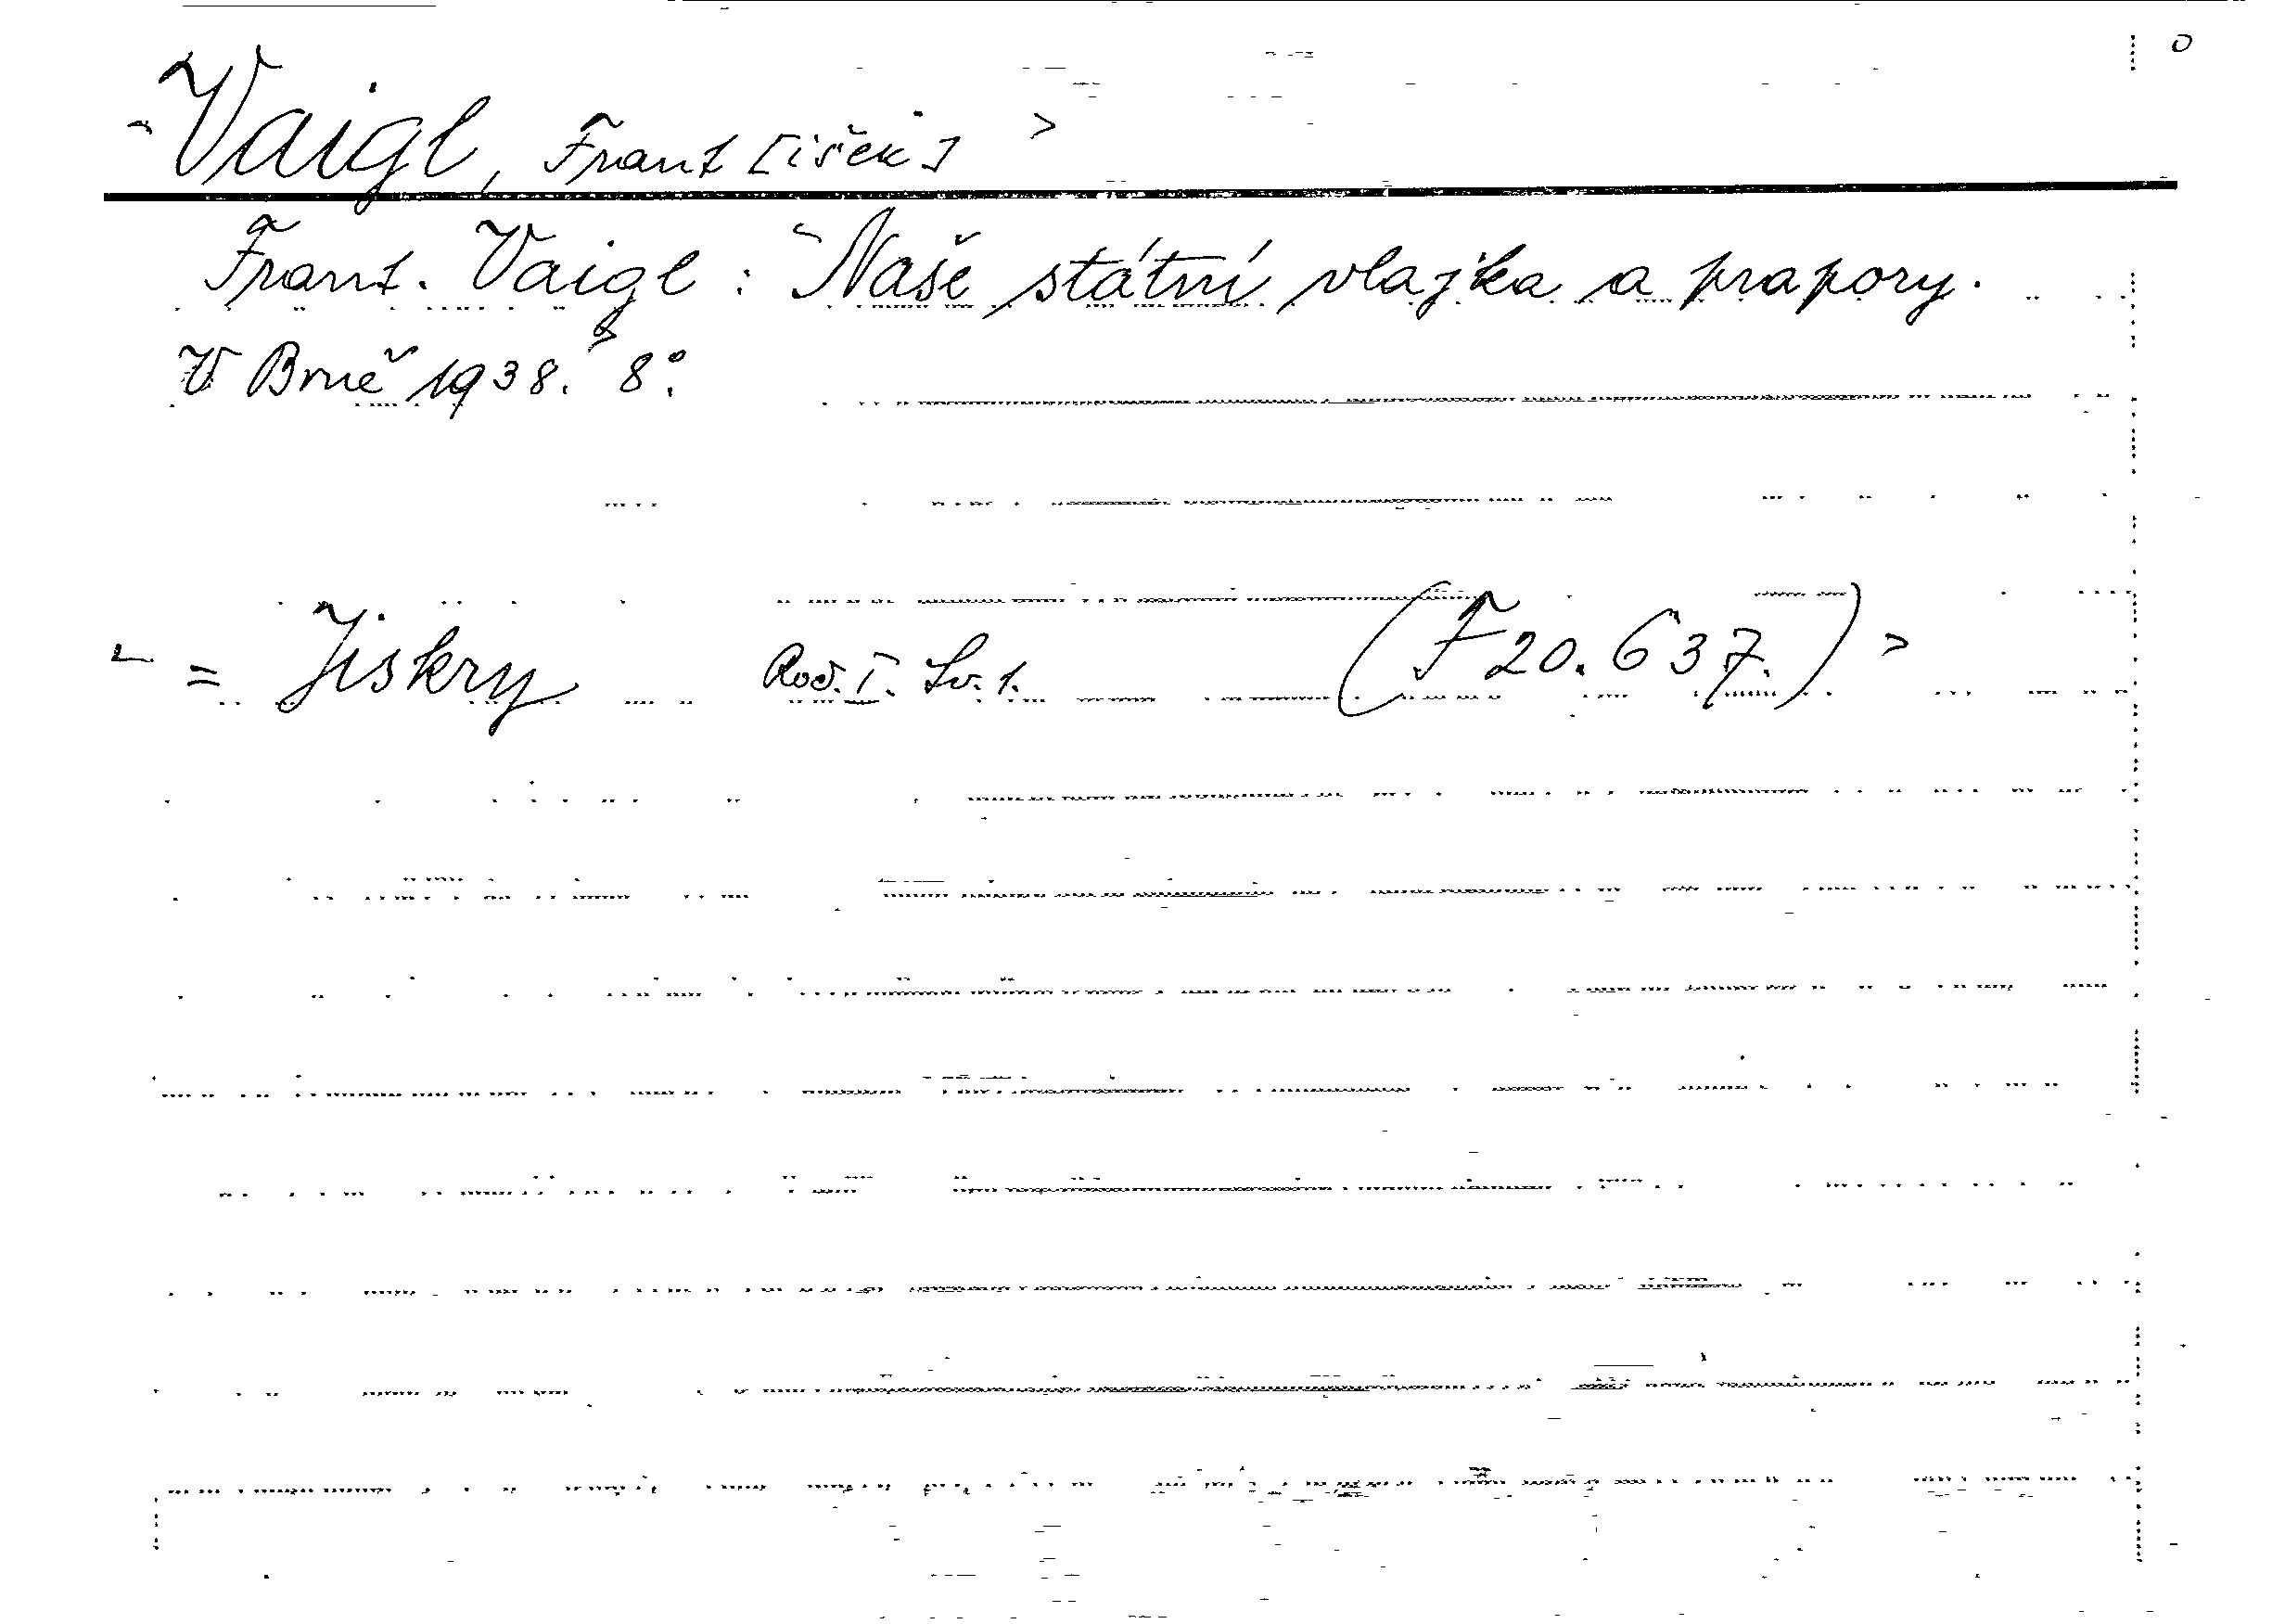 Vaigl, Frant[išek]
Frant. Vaigl: Naše státní vlajka a prapory.
V Brně 1938. 8°.
= Jiskry Roč. I. Sv. 1. (F 20.637.)